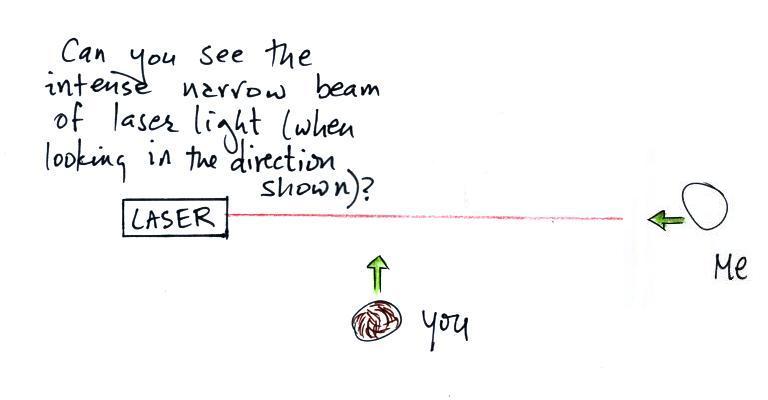 Can you see the
intense narrow beam
of laser light (when
looking in the direction
shown)?
LASER
Me
you